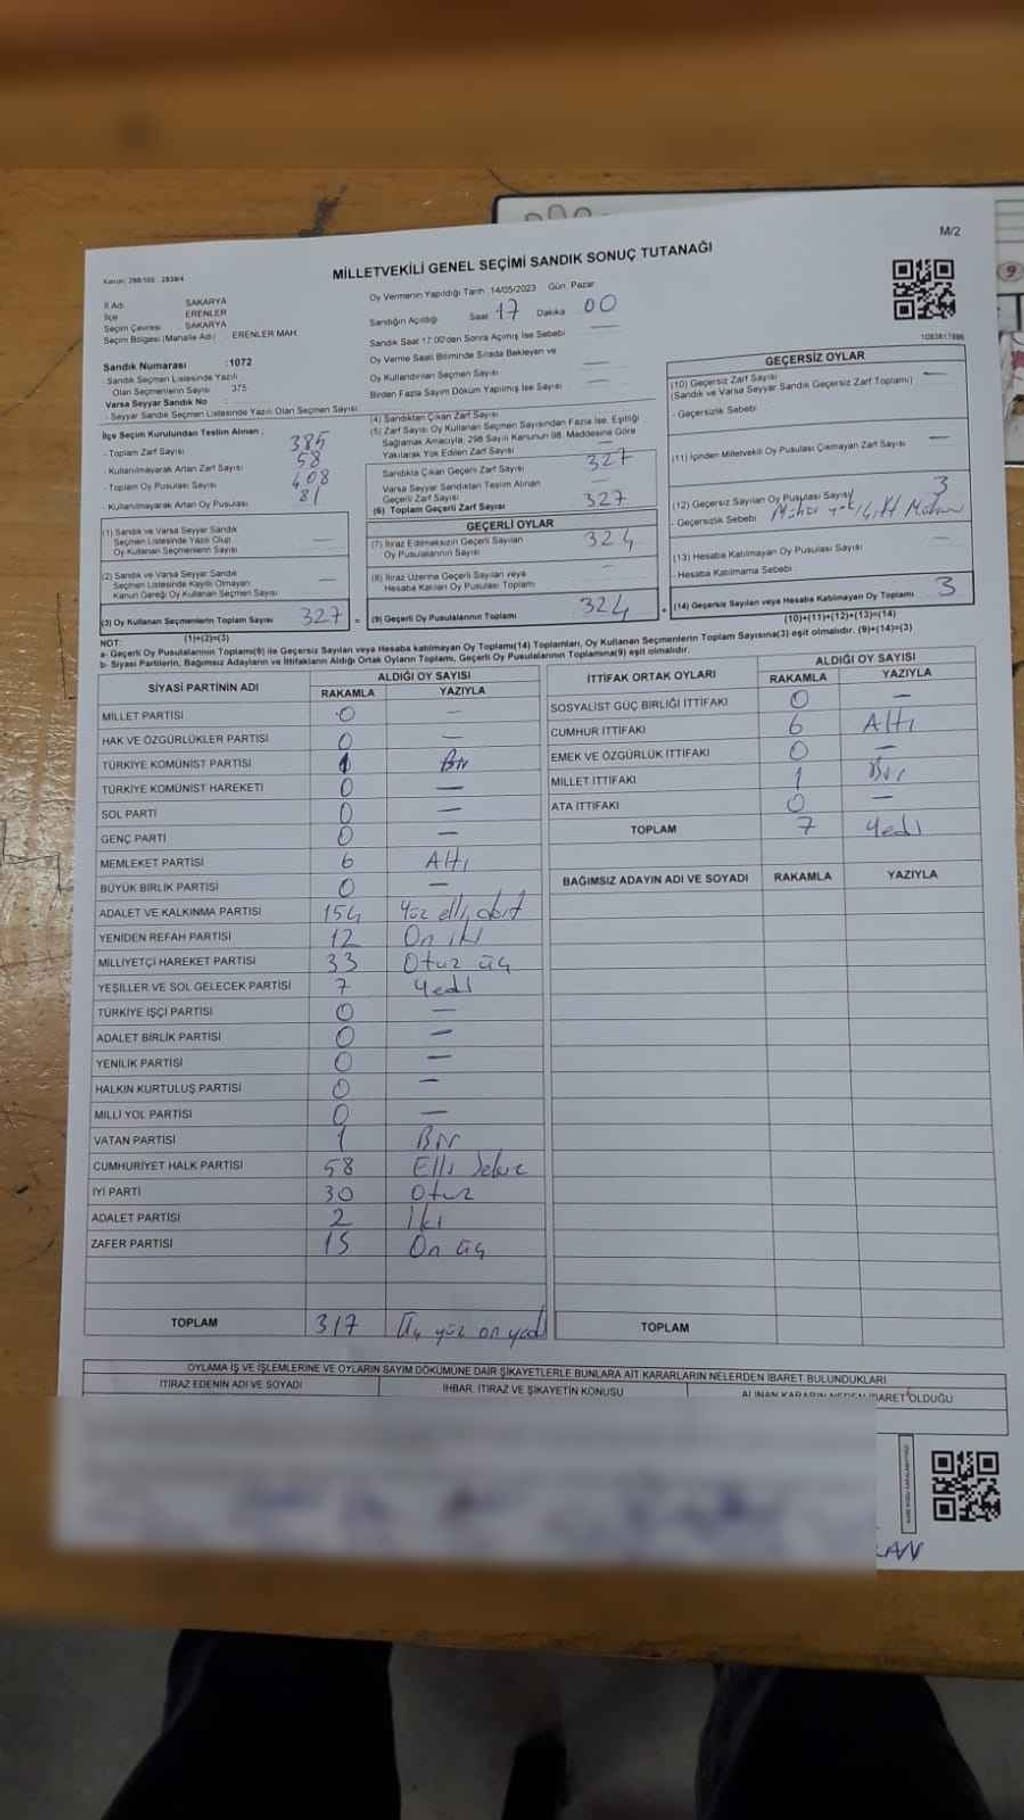 M/2
MİLLETVEKİLİ GENEL SEÇİMİ SANDIK SONUÇ TUTANAĞI
İl Adı: SAKARYA
İlçe ERENLER
Seçim Çevresi SAKARYA
Seçim Bölgesi (Mahalle Adı) ERENLER MAH.
Sandık Numarası :1072
- Sandık Seçmen Listesinde Yazılı
Olan Seçmenlerin Sayısı 375
Varsa Seyyar Sandık No :
- Seyyar Sandık Seçmen Listesinde Yazılı Olan Seçmen Sayısı
Oy Vermenin Yapıldığı Tarih :14/05/2023 Gün: Pazar
Sandığın Açıldığı Saat 17 Dakika 00
Sandık Saat 17:00'den Sonra Açılmış İse Sebebi —
Oy Verme Saati Bitiminde Sırada Bekleyen ve
Oy Kullandırılan Seçmen Sayısı —
Birden Fazla Sayım Döküm Yapılmış İse Sayısı —
İlçe Seçim Kurulundan Teslim Alınan :
- Toplam Zarf Sayısı 385
- Kullanılmayarak Artan Zarf Sayısı 58
- Toplam Oy Pusulası Sayısı 408
- Kullanılmayarak Artan Oy Pusulası 81
(1) Sandık ve Varsa Seyyar Sandık
Seçmen Listesinde Yazılı Olup
Oy Kullanan Seçmenlerin Sayısı —
(2) Sandık ve Varsa Seyyar Sandık
Seçmen Listesinde Kayıtlı Olmayan
Kanun Gereği Oy Kullanan Seçmen Sayısı —
(3) Oy Kullanan Seçmenlerin Toplam Sayısı 327 =
(1)+(2)=(3)
(4) Sandıktan Çıkan Zarf Sayısı
(5) Zarf Sayısı Oy Kullanan Seçmen Sayısından Fazla İse, Eşitliği
Sağlamak Amacıyla, 298 Sayılı Kanunun 98. Maddesine Göre
Yakılarak Yok Edilen Zarf Sayısı —
Sandıkta Çıkan Geçerli Zarf Sayısı 327
Varsa Seyyar Sandıktan Teslim Alınan
Geçerli Zarf Sayısı —
(6) Toplam Geçerli Zarf Sayısı 327
GEÇERLİ OYLAR
(7) İtiraz Edilmeksizin Geçerli Sayılan
Oy Pusulalarının Sayısı 324
(8) İtiraz Üzerine Geçerli Sayılan veya
Hesaba Katılan Oy Pusulası Toplamı —
(9) Geçerli Oy Pusulası Toplamı 324 +
GEÇERSİZ OYLAR
(10) Geçersiz Zarf Sayısı —
(Sandık ve Varsa Seyyar Sandık Geçersiz Zarf Toplamı)
- Geçersizlik Sebebi
(11) İçinden Milletvekili Oy Pusulası Çıkmayan Zarf Sayısı —
(12) Geçersiz Sayılan Oy Pusulası Sayısı 3
- Geçersizlik Sebebi Mühür yok / Çift Mühür
(13) Hesaba Katılmayan Oy Pusulası Sayısı —
- Hesaba Katılmama Sebebi
(14) Geçersiz Sayılan veya Hesaba Katılmayan Oy Toplamı 3
(10)+(11)+(12)+(13)=(14)
NOT:
a- Geçerli Oy Pusulalarının Toplamı(9) ile Geçersiz Sayılan veya Hesaba katılmayan Oy Toplamı(14) Toplamları, Oy Kullanan Seçmenlerin Toplam Sayısına(3) eşit olmalıdır. (9)+(14)=(3)
b- Siyasi Partilerin, Bağımsız Adayların ve İttifakların Aldığı Ortak Oyların Toplamı, Geçerli Oy Pusulalarının Toplamına(9) eşit olmalıdır.
SİYASİ PARTİNİN ADI ALDIĞI OY SAYISI
RAKAMLA YAZIYLA
MİLLET PARTİSİ 0 —
HAK VE ÖZGÜRLÜKLER PARTİSİ 0 —
TÜRKİYE KOMÜNİST PARTİSİ 1 Bir
TÜRKİYE KOMÜNİST HAREKETİ 0 —
SOL PARTİ 0 —
GENÇ PARTİ 0 —
MEMLEKET PARTİSİ 6 Altı
BÜYÜK BİRLİK PARTİSİ 0 —
ADALET VE KALKINMA PARTİSİ 154 Yüz elli dört
YENİDEN REFAH PARTİSİ 12 On iki
MİLLİYETÇİ HAREKET PARTİSİ 33 Otuz üç
YEŞİLLER VE SOL GELECEK PARTİSİ 7 Yedi
TÜRKİYE İŞÇİ PARTİSİ 0 —
ADALET BİRLİK PARTİSİ 0 —
YENİLİK PARTİSİ 0 —
HALKIN KURTULUŞ PARTİSİ 0 —
MİLLİ YOL PARTİSİ 0 —
VATAN PARTİSİ 1 Bir
CUMHURİYET HALK PARTİSİ 58 Elli Sekiz
İYİ PARTİ 30 Otuz
ADALET PARTİSİ 2 İki
ZAFER PARTİSİ 13 On üç
TOPLAM 317 Üç yüz on yedi
İTTİFAK ORTAK OYLARI ALDIĞI OY SAYISI
RAKAMLA YAZIYLA
SOSYALİST GÜÇ BİRLİĞİ İTTİFAKI 0 —
CUMHUR İTTİFAKI 6 Altı
EMEK VE ÖZGÜRLÜK İTTİFAKI 0 —
MİLLET İTTİFAKI 1 Bir
ATA İTTİFAKI 0 —
TOPLAM 7 Yedi
BAĞIMSIZ ADAYIN ADI VE SOYADI RAKAMLA YAZIYLA
TOPLAM
OYLAMA İŞ VE İŞLEMLERİNE VE OYLARIN SAYIM DÖKÜMÜNE DAİR ŞİKAYETLERLE BUNLARA AİT KARARLARIN NELERDEN İBARET BULUNDUKLARI
İTİRAZ EDENİN ADI VE SOYADI İHBAR, İTİRAZ VE ŞİKAYETİN KONUSU ALINAN KARARIN NEDEN İBARET OLDUĞU